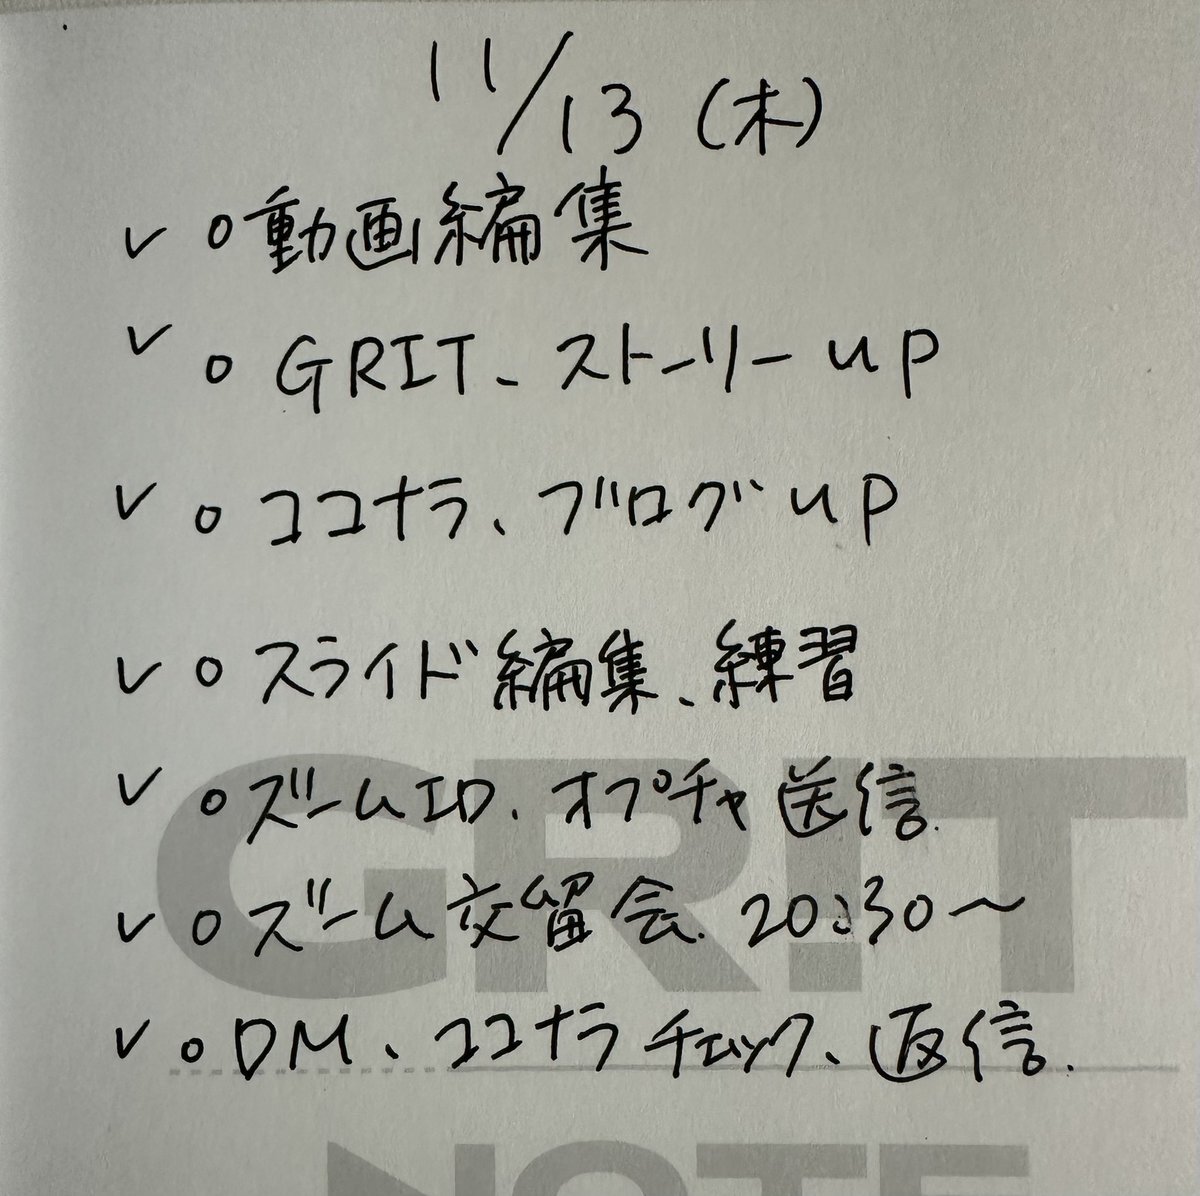 11/13 (木)
✓ ○ 動画編集
✓ ○ GRIT、ストーリーup
✓ ○ ココナラ、ブログup
✓ ○ スライド編集、練習
✓ ○ ズームID、オプチャ送信.
✓ ○ ズーム交留会. 20:30～
✓ ○ DM、ココナラチェック、返信.
GRIT
NOTE